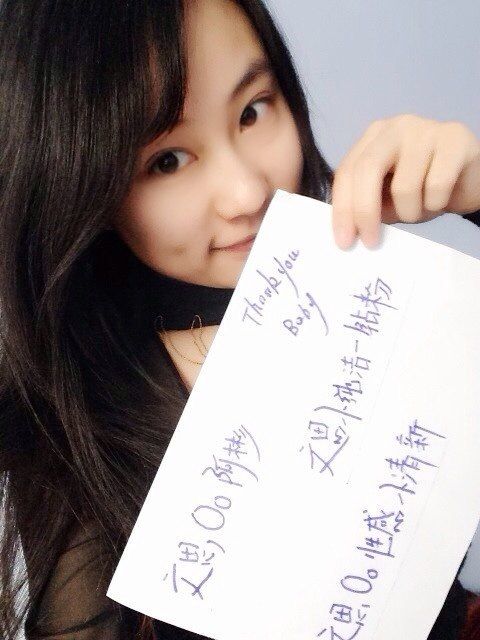 Thank you
Baby
文思Oo阿彬
文思小纯洁一钻粉
文思Oo性感小清新